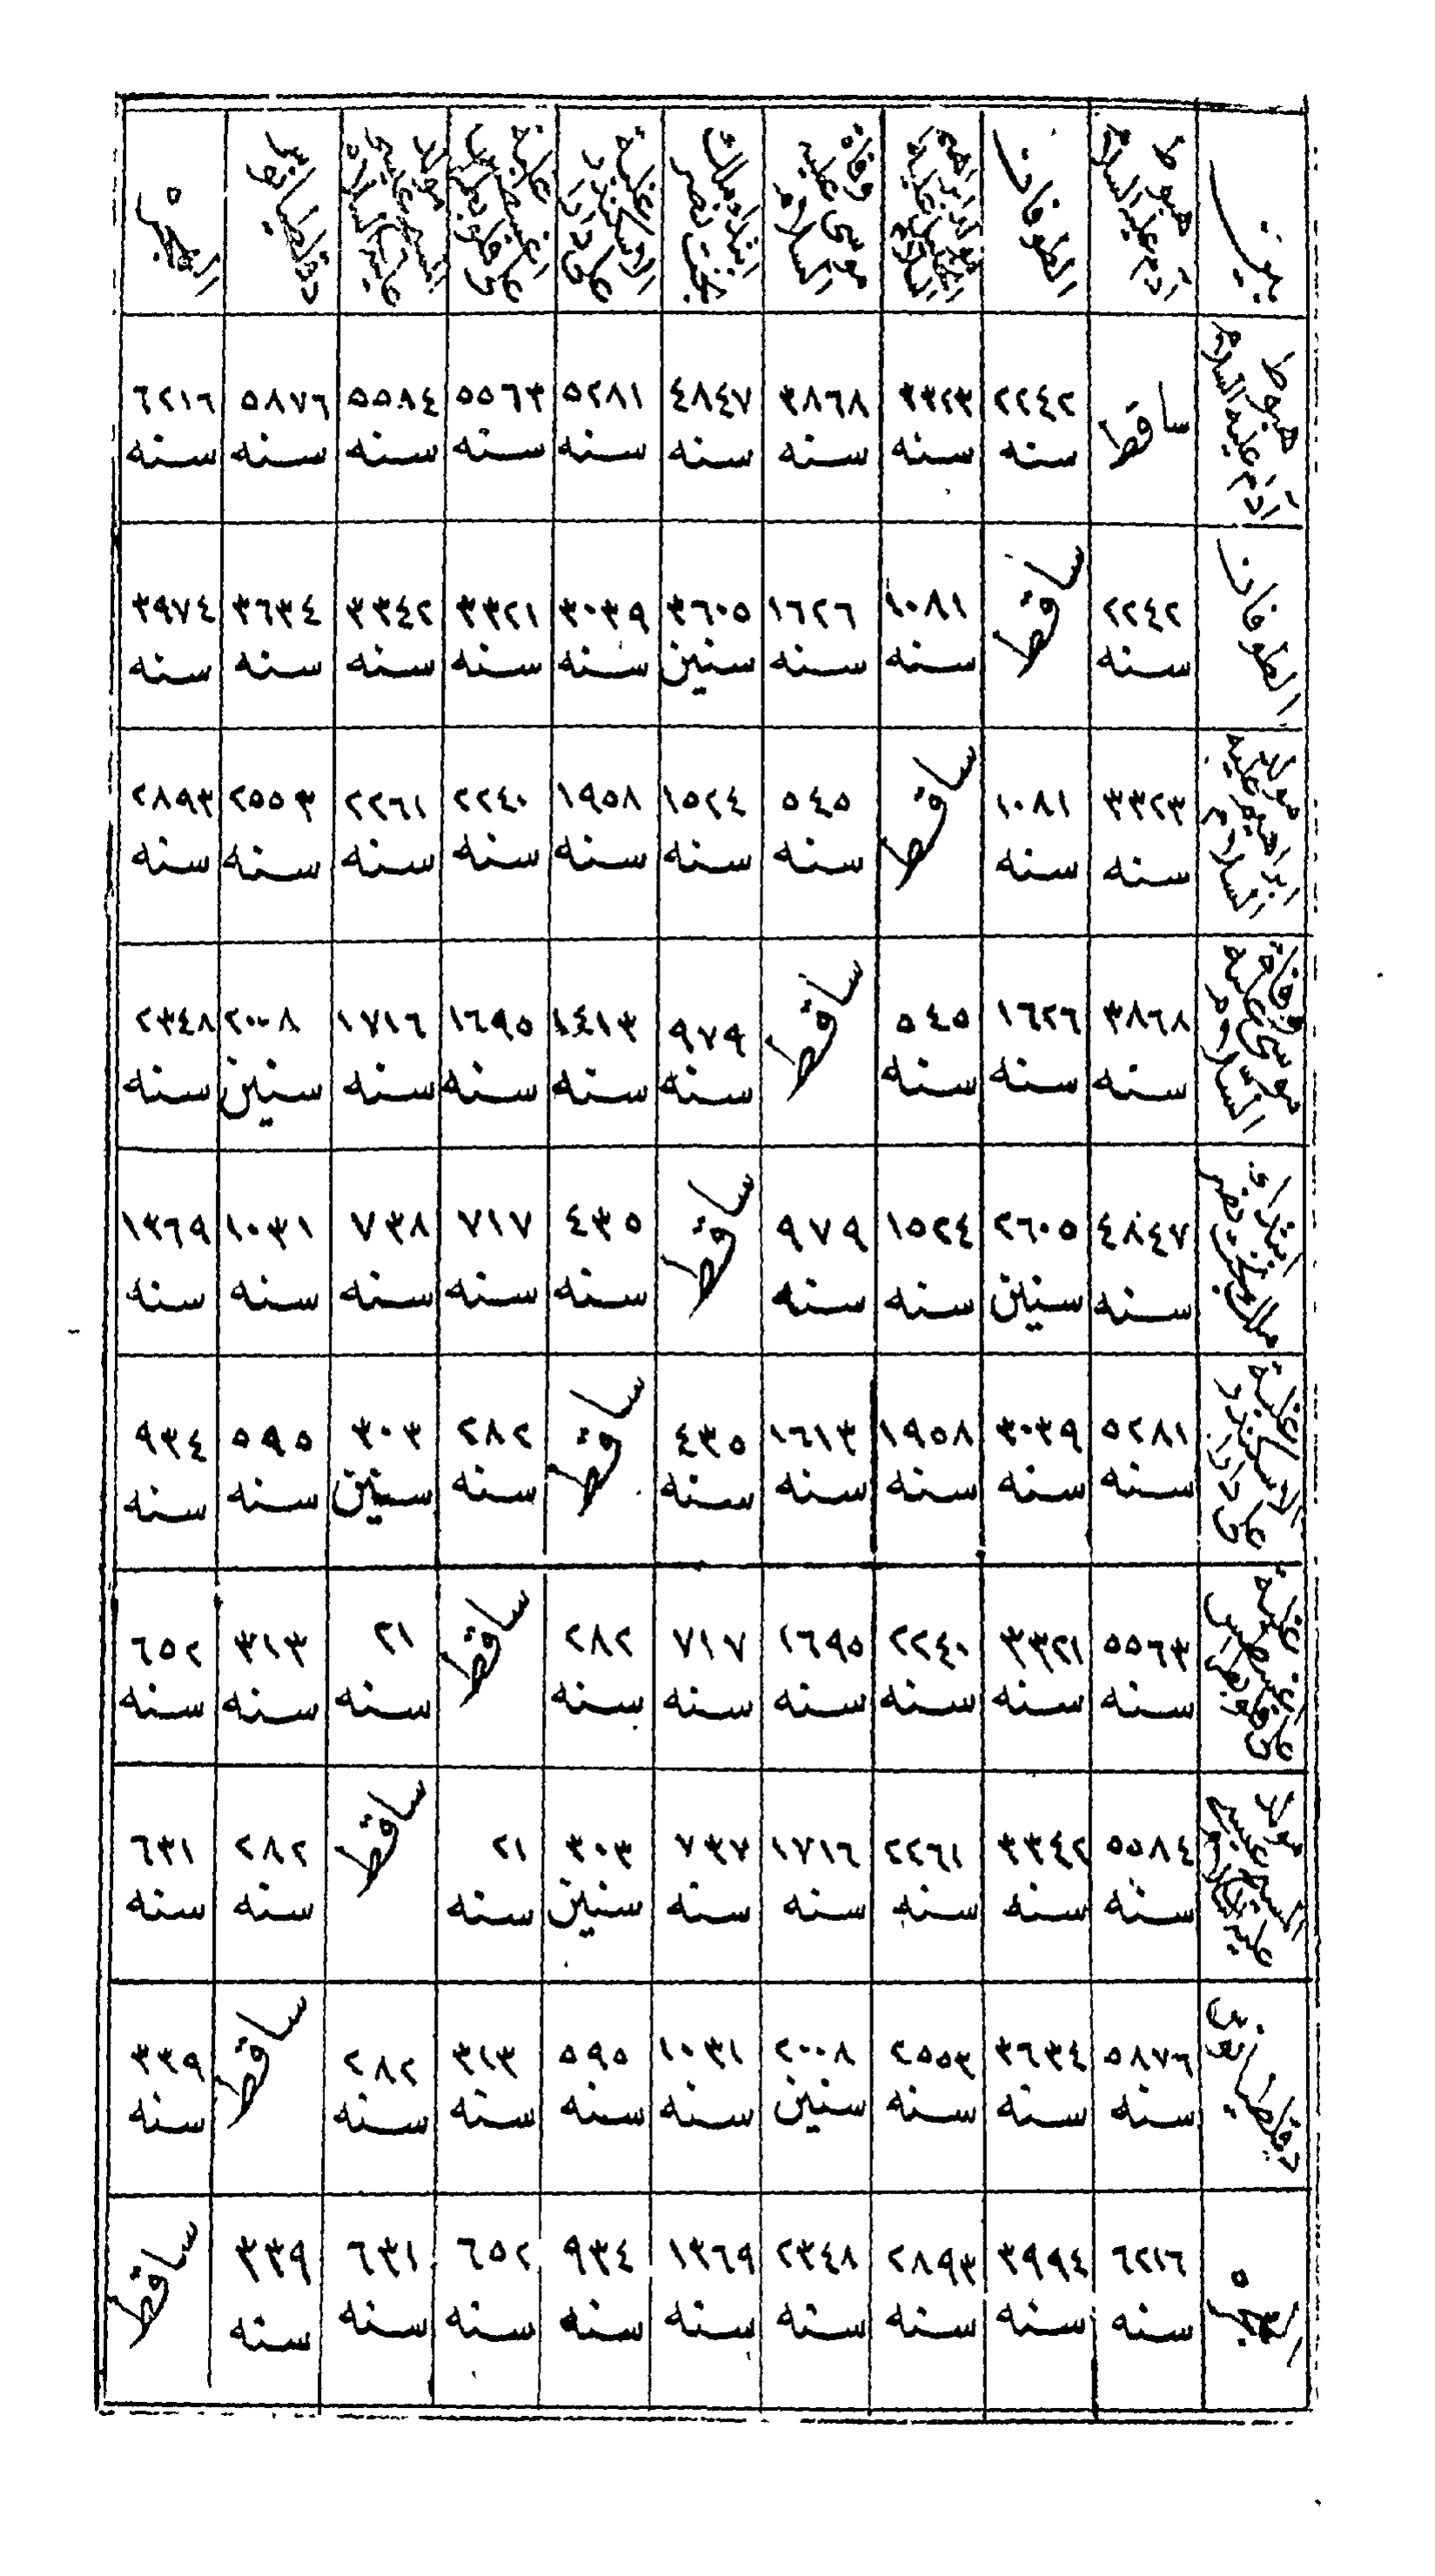 بين | هبوط آدم عليه السلام | الطوفان | مولد ابراهيم الخليل عليه السلام | وفاة موسى عليه السلام | ابتداء ملك بخت نصر | غلبة الاسكندر على دارا | غلبة اغسطس على قلوبطرا | مولد المسيح عيسى عليه السلام | دقلطيانوس | الهجره
هبوط آدم عليه السلام | ساقط | ٢٢٤٢ سنه | ٣٣٢٣ سنه | ٣٨٦٨ سنه | ٤٨٤٧ سنه | ٥٢٨١ سنه | ٥٥٦٣ سنه | ٥٥٨٤ سنه | ٥٨٧٦ سنه | ٦٢١٦ سنه
الطوفان | ٢٢٤٢ سنه | ساقط | ١٠٨١ سنه | ١٦٢٦ سنه | ٣٦٠٥ سنين | ٣٠٣٩ سنه | ٣٣٢١ سنه | ٣٣٤٢ سنه | ٣٦٣٤ سنه | ٣٩٧٤ سنه
مولد ابراهيم عليه السلام | ٣٣٢٣ سنه | ١٠٨١ سنه | ساقط | ٥٤٥ سنه | ١٥٢٤ سنه | ١٩٥٨ سنه | ٢٢٤٠ سنه | ٢٢٦١ سنه | ٢٥٥٣ سنه | ٢٨٩٣ سنه
وفاة موسى عليه السلام | ٣٨٦٨ سنه | ١٦٢٦ سنه | ٥٤٥ سنه | ساقط | ٩٧٩ سنه | ١٤١٣ سنه | ١٦٩٥ سنه | ١٧١٦ سنه | ٢٠٠٨ سنين | ٢٣٤٨ سنه
ابتداى ملك بخت نصر | ٤٨٤٧ سنه | ٢٦٠٥ سنين | ١٥٢٤ سنه | ٩٧٩ سنه | ساقط | ٤٣٥ سنه | ٧١٧ سنه | ٧٣٨ سنه | ١٠٣١ سنه | ١٣٦٩ سنه
غلبة الاسكندر على دارا | ٥٢٨١ سنه | ٣٠٣٩ سنه | ١٩٥٨ سنه | ١٦١٣ سنه | ٤٣٥ سنه | ساقط | ٢٨٢ سنه | ٣٠٣ سنين | ٥٩٥ سنه | ٩٣٤ سنه
غلبة اغسطس على قلوبطرا | ٥٥٦٣ سنه | ٣٣٢١ سنه | ٢٢٤٠ سنه | ١٦٩٥ سنه | ٧١٧ سنه | ٢٨٢ سنه | ساقط | ٢١ سنه | ٣١٣ سنه | ٦٥٢ سنه
مولد المسيح عيسى عليه السلام | ٥٥٨٤ سنه | ٣٣٤٢ سنه | ٢٢٦١ سنه | ١٧١٦ سنه | ٧٣٧ سنه | ٣٠٣ سنين | ٢١ سنه | ساقط | ٢٨٢ سنه | ٦٣١ سنه
دقلطيانوس | ٥٨٧٦ سنه | ٣٦٣٤ سنه | ٢٥٥٣ سنه | ٢٠٠٨ سنين | ١٠٣١ سنه | ٥٩٥ سنه | ٣١٣ سنه | ٢٨٢ سنه | ساقط | ٣٣٩ سنه
الهجره | ٦٢١٦ سنه | ٣٩٩٤ سنه | ٢٨٩٣ سنه | ٢٣٤٨ سنه | ١٣٦٩ سنه | ٩٣٤ سنه | ٦٥٢ سنه | ٦٣١ سنه | ٣٣٩ سنه | ساقط